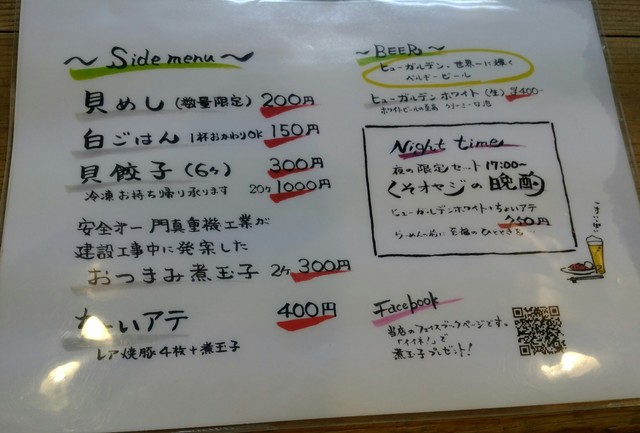 ~ Side menu ~
貝めし (数量限定) 200円
白ごはん 1杯おかわりOK 150円
貝餃子 (6ヶ) 300円
冷凍お持ち帰り承ります 20ヶ 1000円
安全オー 門真重機工業が
建設工事中に発案した
おつまみ煮玉子 2ヶ 300円
ちょいアテ 400円
レア焼豚4枚+煮玉子
~ BEER ~
ヒューガルデン、世界一に輝く
ベルギービール
ヒューガルデンホワイト (生) ¥400-
Night time
夜の限定セット 17:00~
くそオヤジの晩酌
ヒューガルデンホワイト+ちょいアテ
円
らーめんの前に 至福のひととき
Facebook
当店のフェイスブックページです。
「イイネ!」で
煮玉子プレゼント!